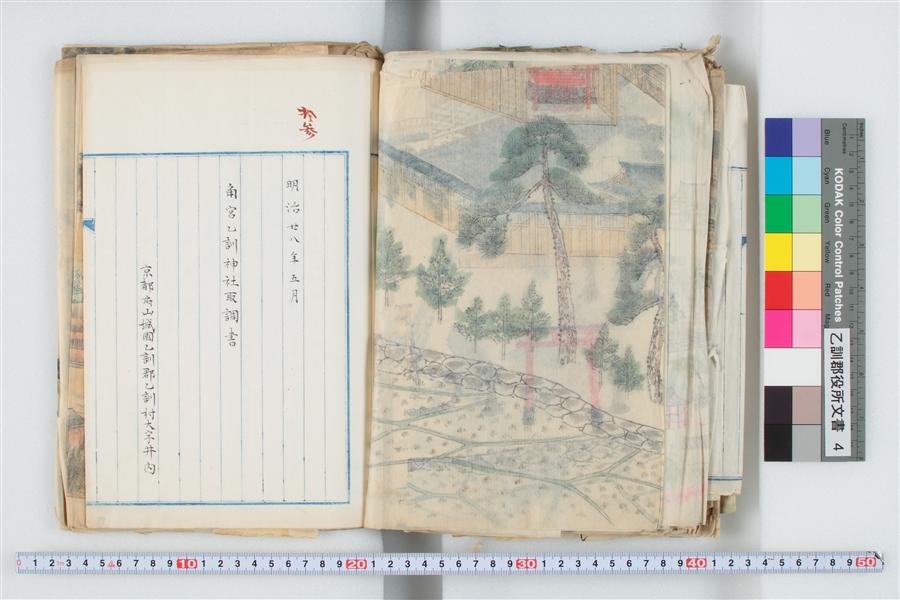 拾参
明治廿八年五月
角宮乙訓神社取調書
京都府山城國乙訓郡乙訓村大字井内
Inches
Centimetres
KODAK Color Control Patches
Blue
Cyan
Green
Yellow
Red
乙訓郡役所文書 4
0 1 2 3 4 5 6 7 8 9 10 1 2 3 4 5 6 7 8 9 20 1 2 3 4 5 6 7 8 9 30 1 2 3 4 5 6 7 8 9 40 1 2 3 4 5 6 7 8 9 50